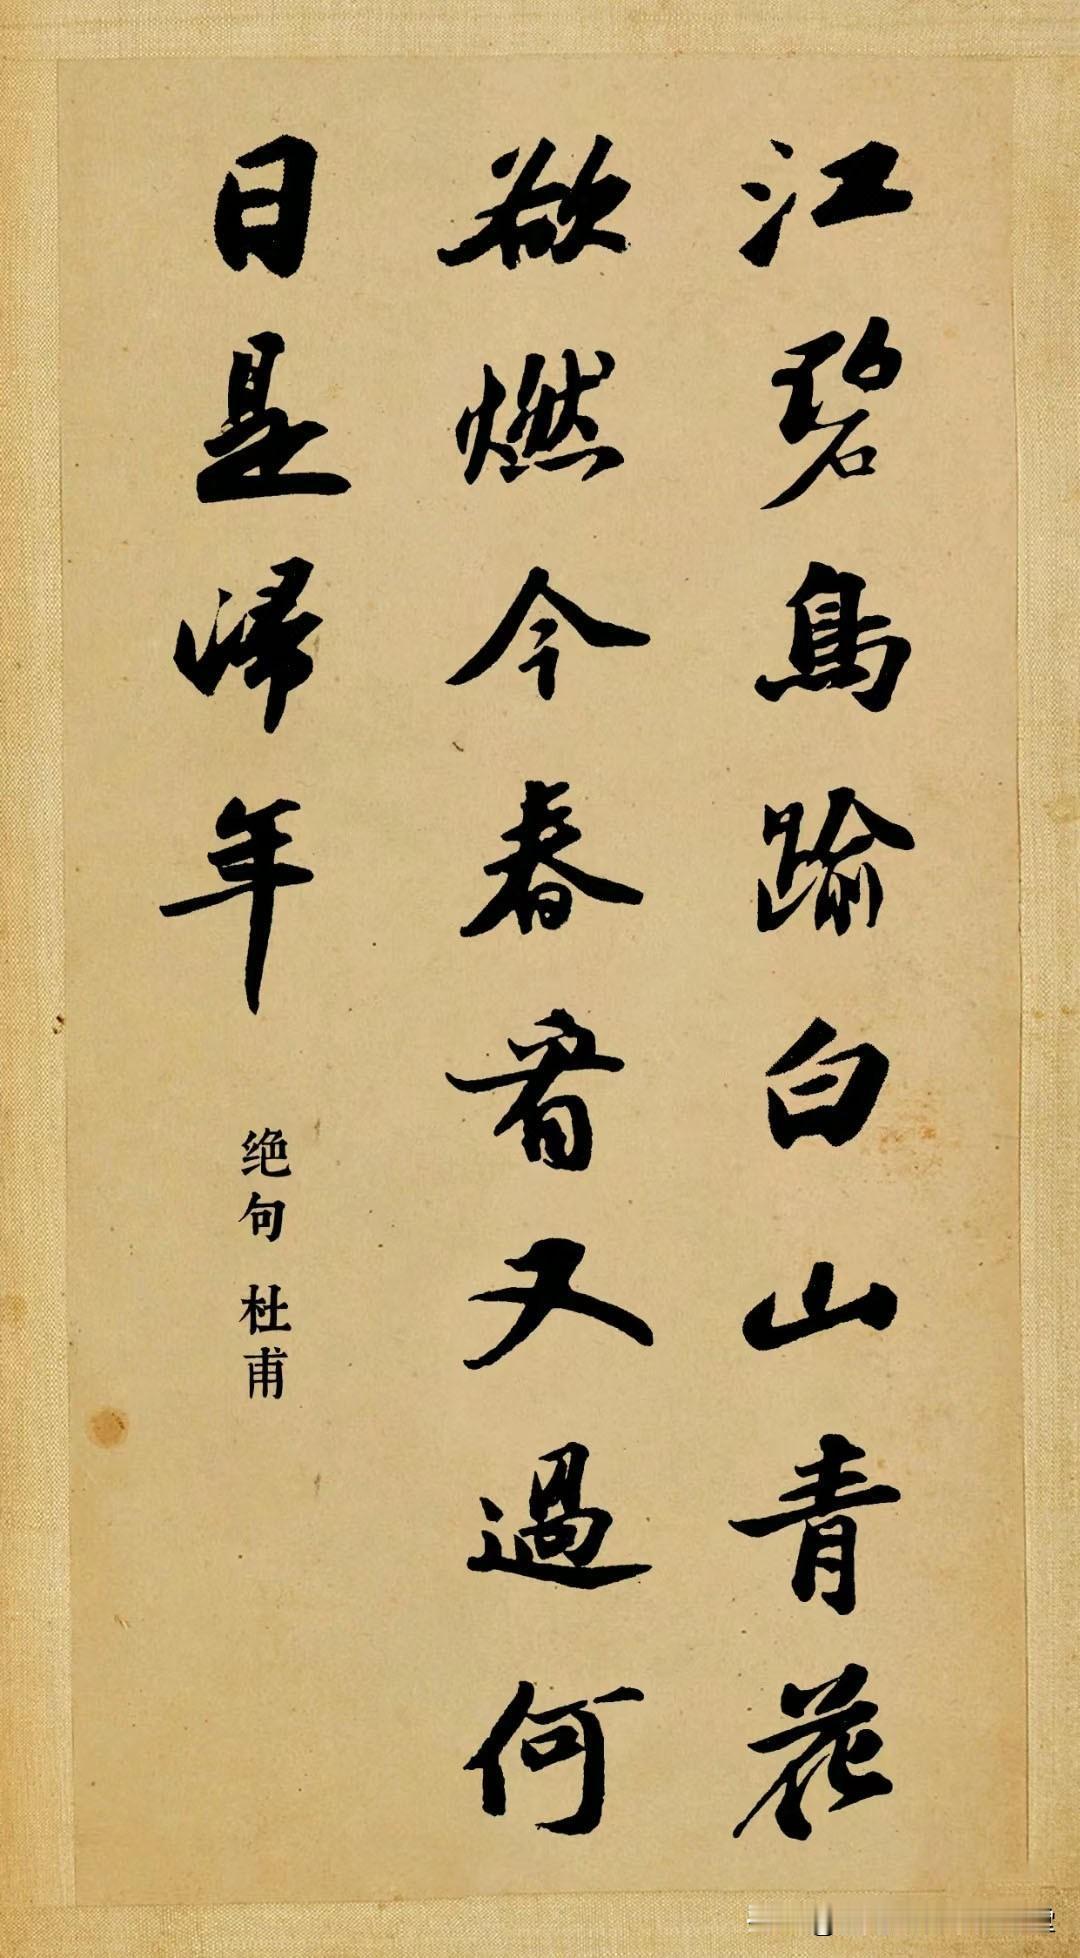 江碧鳥踰白山青花
欲燃今春看又過何
日是歸年
绝句 杜甫